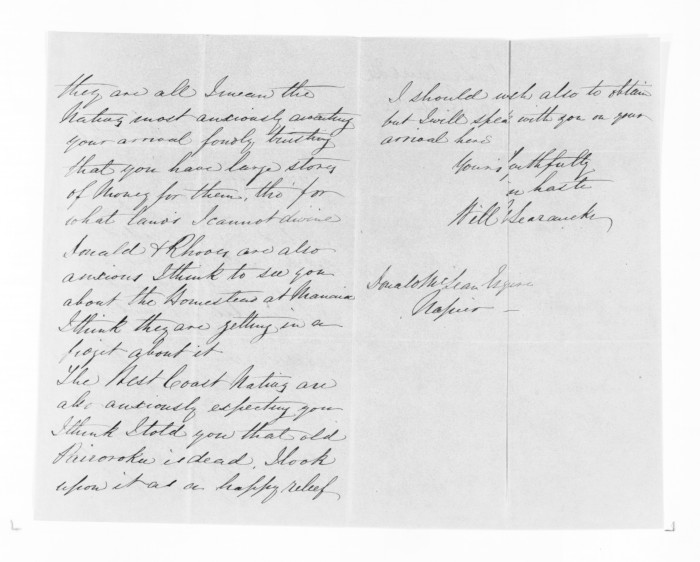 they are all I mean the
Natives most anxiously awaiting
your arrival fondly trusting
that you have large stores
of Money for them, tho' for
what lands I cannot divine
Donald & Rhodes are also
anxious I think to see you
about the Homestead at
I think they are getting in a
fidget about it
The West Coast Natives are
also anxiously expecting you
I think I told you that old
is dead, I look
upon it as a happy relief
I should wish also to obtain
but I will speak with you on your
arrival here
Yours faithfully
in haste
Will Searancke
Donald McLean Esquire
Napier